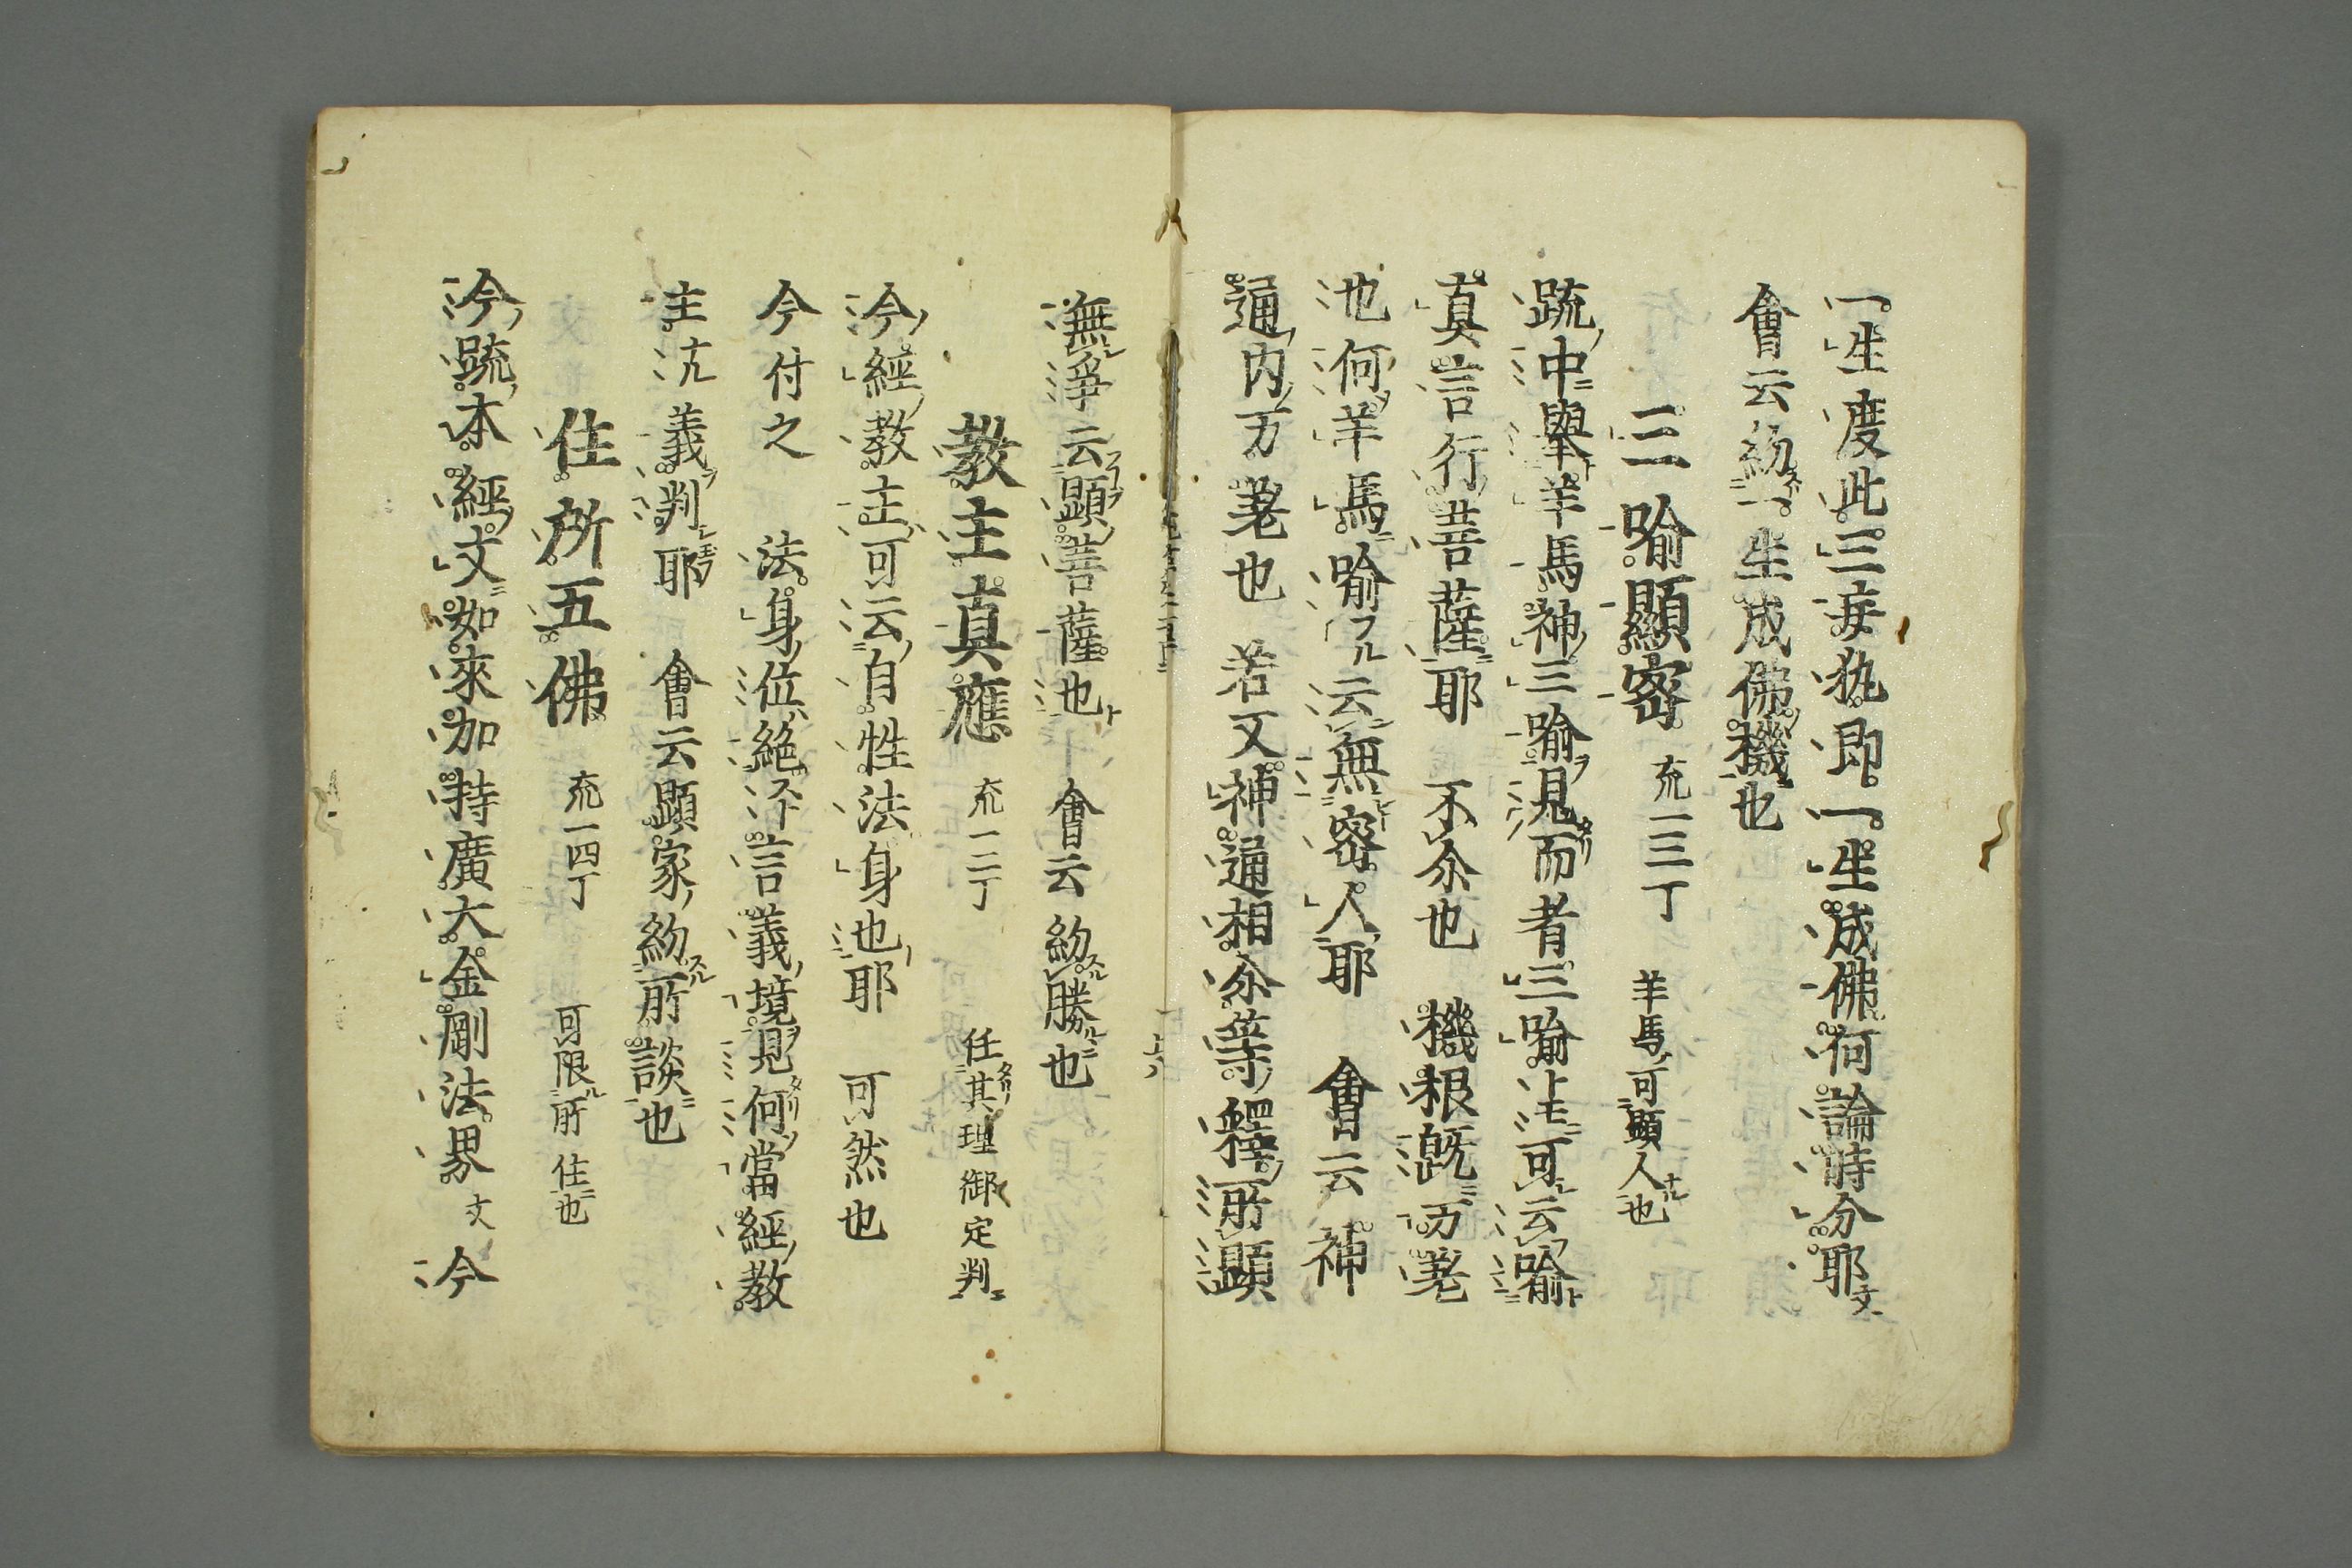 一生度此三妄執即一生成佛何論時分耶文
會云約一生成佛機也
三喻顯密 充一三丁 羊馬可顯人也
疏中擧羊馬神三喻見而者三喻汢可云喻
真言行菩薩耶 不尒也 機根既万差
也何羊馬喻フル云無密人耶 會云神
通内万差也 若又神通相尒等釋所顯
無諍云顯菩薩也 會云約勝也
教主真應 充一二丁 任其理御定判
今經教主可云自性法身也耶 可然也
今付之 法身位絶言義境見何當經教
主義判耶 會云顯家約所談也
住所五佛 充一四丁 可限所住也
今疏本經文如來加持廣大金剛法界文 今